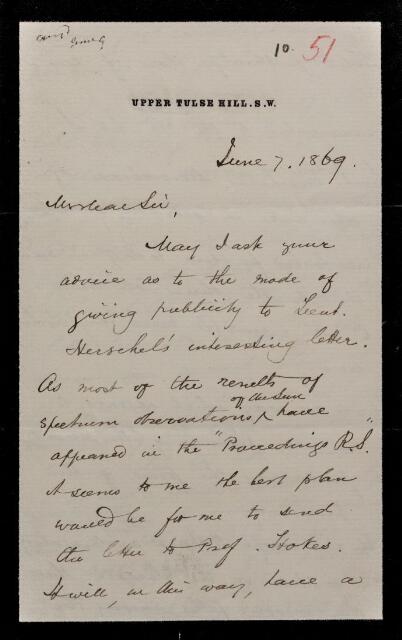 10. 51
UPPER TULSE HILL. S.W.
June 7. 1869.
My dear Sir,
May I ask your
advice as to the mode of
giving publicity to Lieut.
Herschel's interesting letter.
As most of the results of
spectrum observations of the Sun have
appeared in the "Proceedings R.S."
it seems to me the best plan
would be for me to send
the letter to Prof. Stokes.
It will, in this way, have a